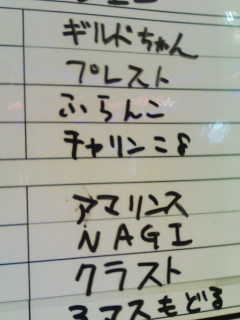 ギルドちゃん
プレスト
ふらんこ
チャリンこ8
アマリンス
NAGI
クラスト
3マスもどる